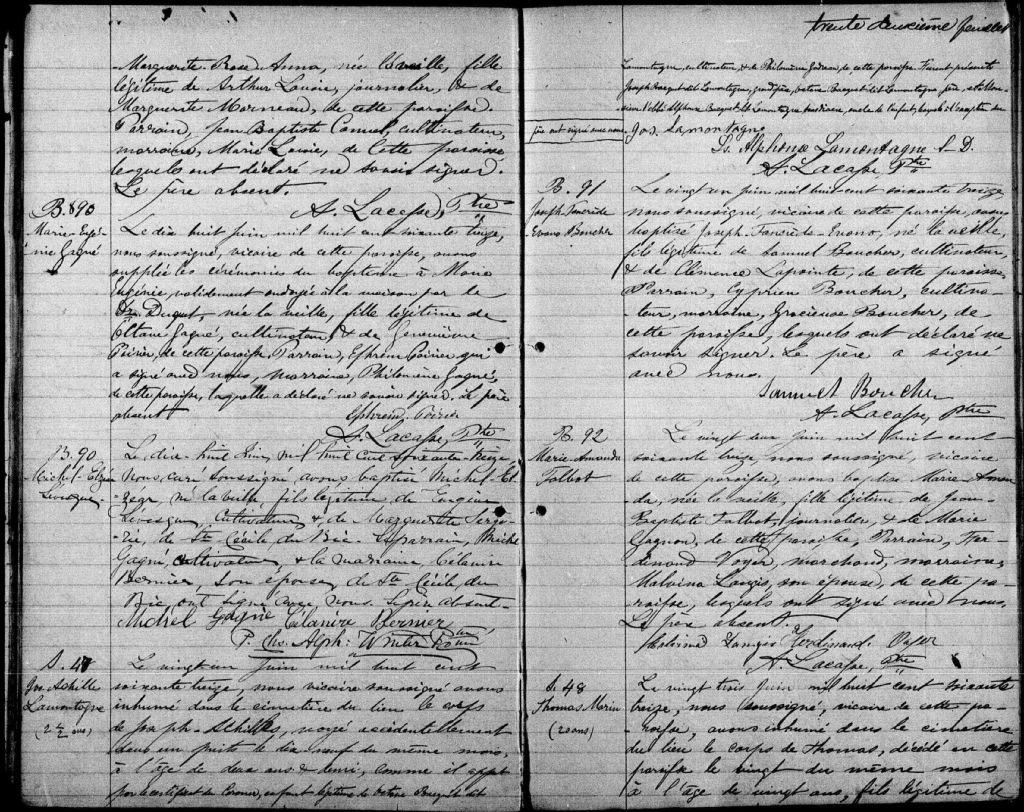 Marguerite Rose-Anna, née la veille, fille
légitime de Arthur Lavoie, journalier, & de
Marguerite Morneau, de cette paroisse.
Parrain, Jean Baptiste Canuel, cultivateur,
marraine, Marie Lavoie, de cette paroisse
lesquels ont déclaré ne savoir signer.
Le père absent.
A. Lacasse, Ptre
B. 890
Marie-Eugé-
nie Gagné
Le dix huit juin mil huit cent soixante treize,
nous soussigné, vicaire de cette paroisse, avons
suppléé les cérémonies du baptême à Marie
Eugénie, validement ondoyée à la maison par le
Dr. Duguet, née la veille, fille légitime de
Octave Gagné, cultivateur, & de Geneviève
Poirier, de cette paroisse. Parrain, Ephrem Poirier qui
a signé avec nous, marraine, Philomène Gagné,
de cette paroisse, laquelle a déclaré ne savoir signer. Le père
absent.
Ephrem Poirier
A. Lacasse, Ptre
B. 90
Michel-Elzéar
Levesque
Le dix-huit Juin mil huit cent soixante-treize
Nous curé soussigné avons baptisé Michel-El-
zéar, né la veille fils légitime de Eugène
Lévesque, Cultivateur, & de Marguerite
de Ste Cécile du Bic. Le parrain, Michel
Gagné, cultivateur & la marraine, Célanire
Bernier, son épouse, de Ste Cécile du
Bic, ont signé avec nous. Le père absent.
Michel Gagné Célanire Bernier
P. Chs. Alph. Winter
S. 47
Jos. Achille
Lamontagne
(2 1/2 ans)
Le vingt un juin mil huit cent
soixante treize, nous vicaire soussigné avons
inhumé dans le cimetière du lieu le corps
de Joseph-Achille, noyé accidentellement
dans un puits le dix neuf du même mois,
à l'âge de deux ans & demi, comme il appt
par le certificat du Coronaire, enfant légitime de Octave Bouquet dit
trente deuxième feuillet
Lamontagne, cultivateur, & de Philomène Gadreau, de cette paroisse. Furent présents
Joseph Bouquet dit Lamontagne,
Alphonse Bouquet dit Lamontagne
qui ont signé avec nous.
Jos. Lamontagne
Ls. Alphonse Lamontagne S. D.
A. Lacasse Ptre
B. 91
Joseph Tancrède
Evano Boucher
Le vingt un juin mil huit cent soixante treize,
nous soussigné, vicaire de cette paroisse, avons
baptisé Joseph-Tancrède-Evano, né la veille,
fils légitime de Samuel Boucher, cultivateur,
& de Clémence Lapointe, de cette paroisse.
Parrain, Cyprien Boucher, cultiva-
teur, marraine, Gracieuse Boucher, de
cette paroisse, lesquels ont déclaré ne
savoir signer. Le père a signé
avec nous.
Samuel Boucher
A. Lacasse, Ptre
B. 92
Marie Amanda
Talbot
Le vingt un juin mil huit cent
soixante treize, nous soussigné, vicaire
de cette paroisse, avons baptisé Marie Aman-
da, née la veille, fille légitime de Jean-
Baptiste Talbot, journalier, & de Marie
Gagnon, de cette paroisse, Parrain, Fer-
dinand Voyer, marchand, marraine,
Malvina Langis, son épouse, de cette pa-
roisse, lesquels ont signé avec nous.
Le père absent.
Malvina Langis Ferdinand Voyer
A. Lacasse, Ptre
S. 48
Thomas Morin
(20 ans)
Le vingt trois juin mil huit cent soixante
treize, nous soussigné, vicaire de cette pa-
roisse, avons inhumé dans le cimetière
du lieu le corps de Thomas, décédé en cette
paroisse le vingt du même mois
à l'âge de vingt ans, fils légitime de